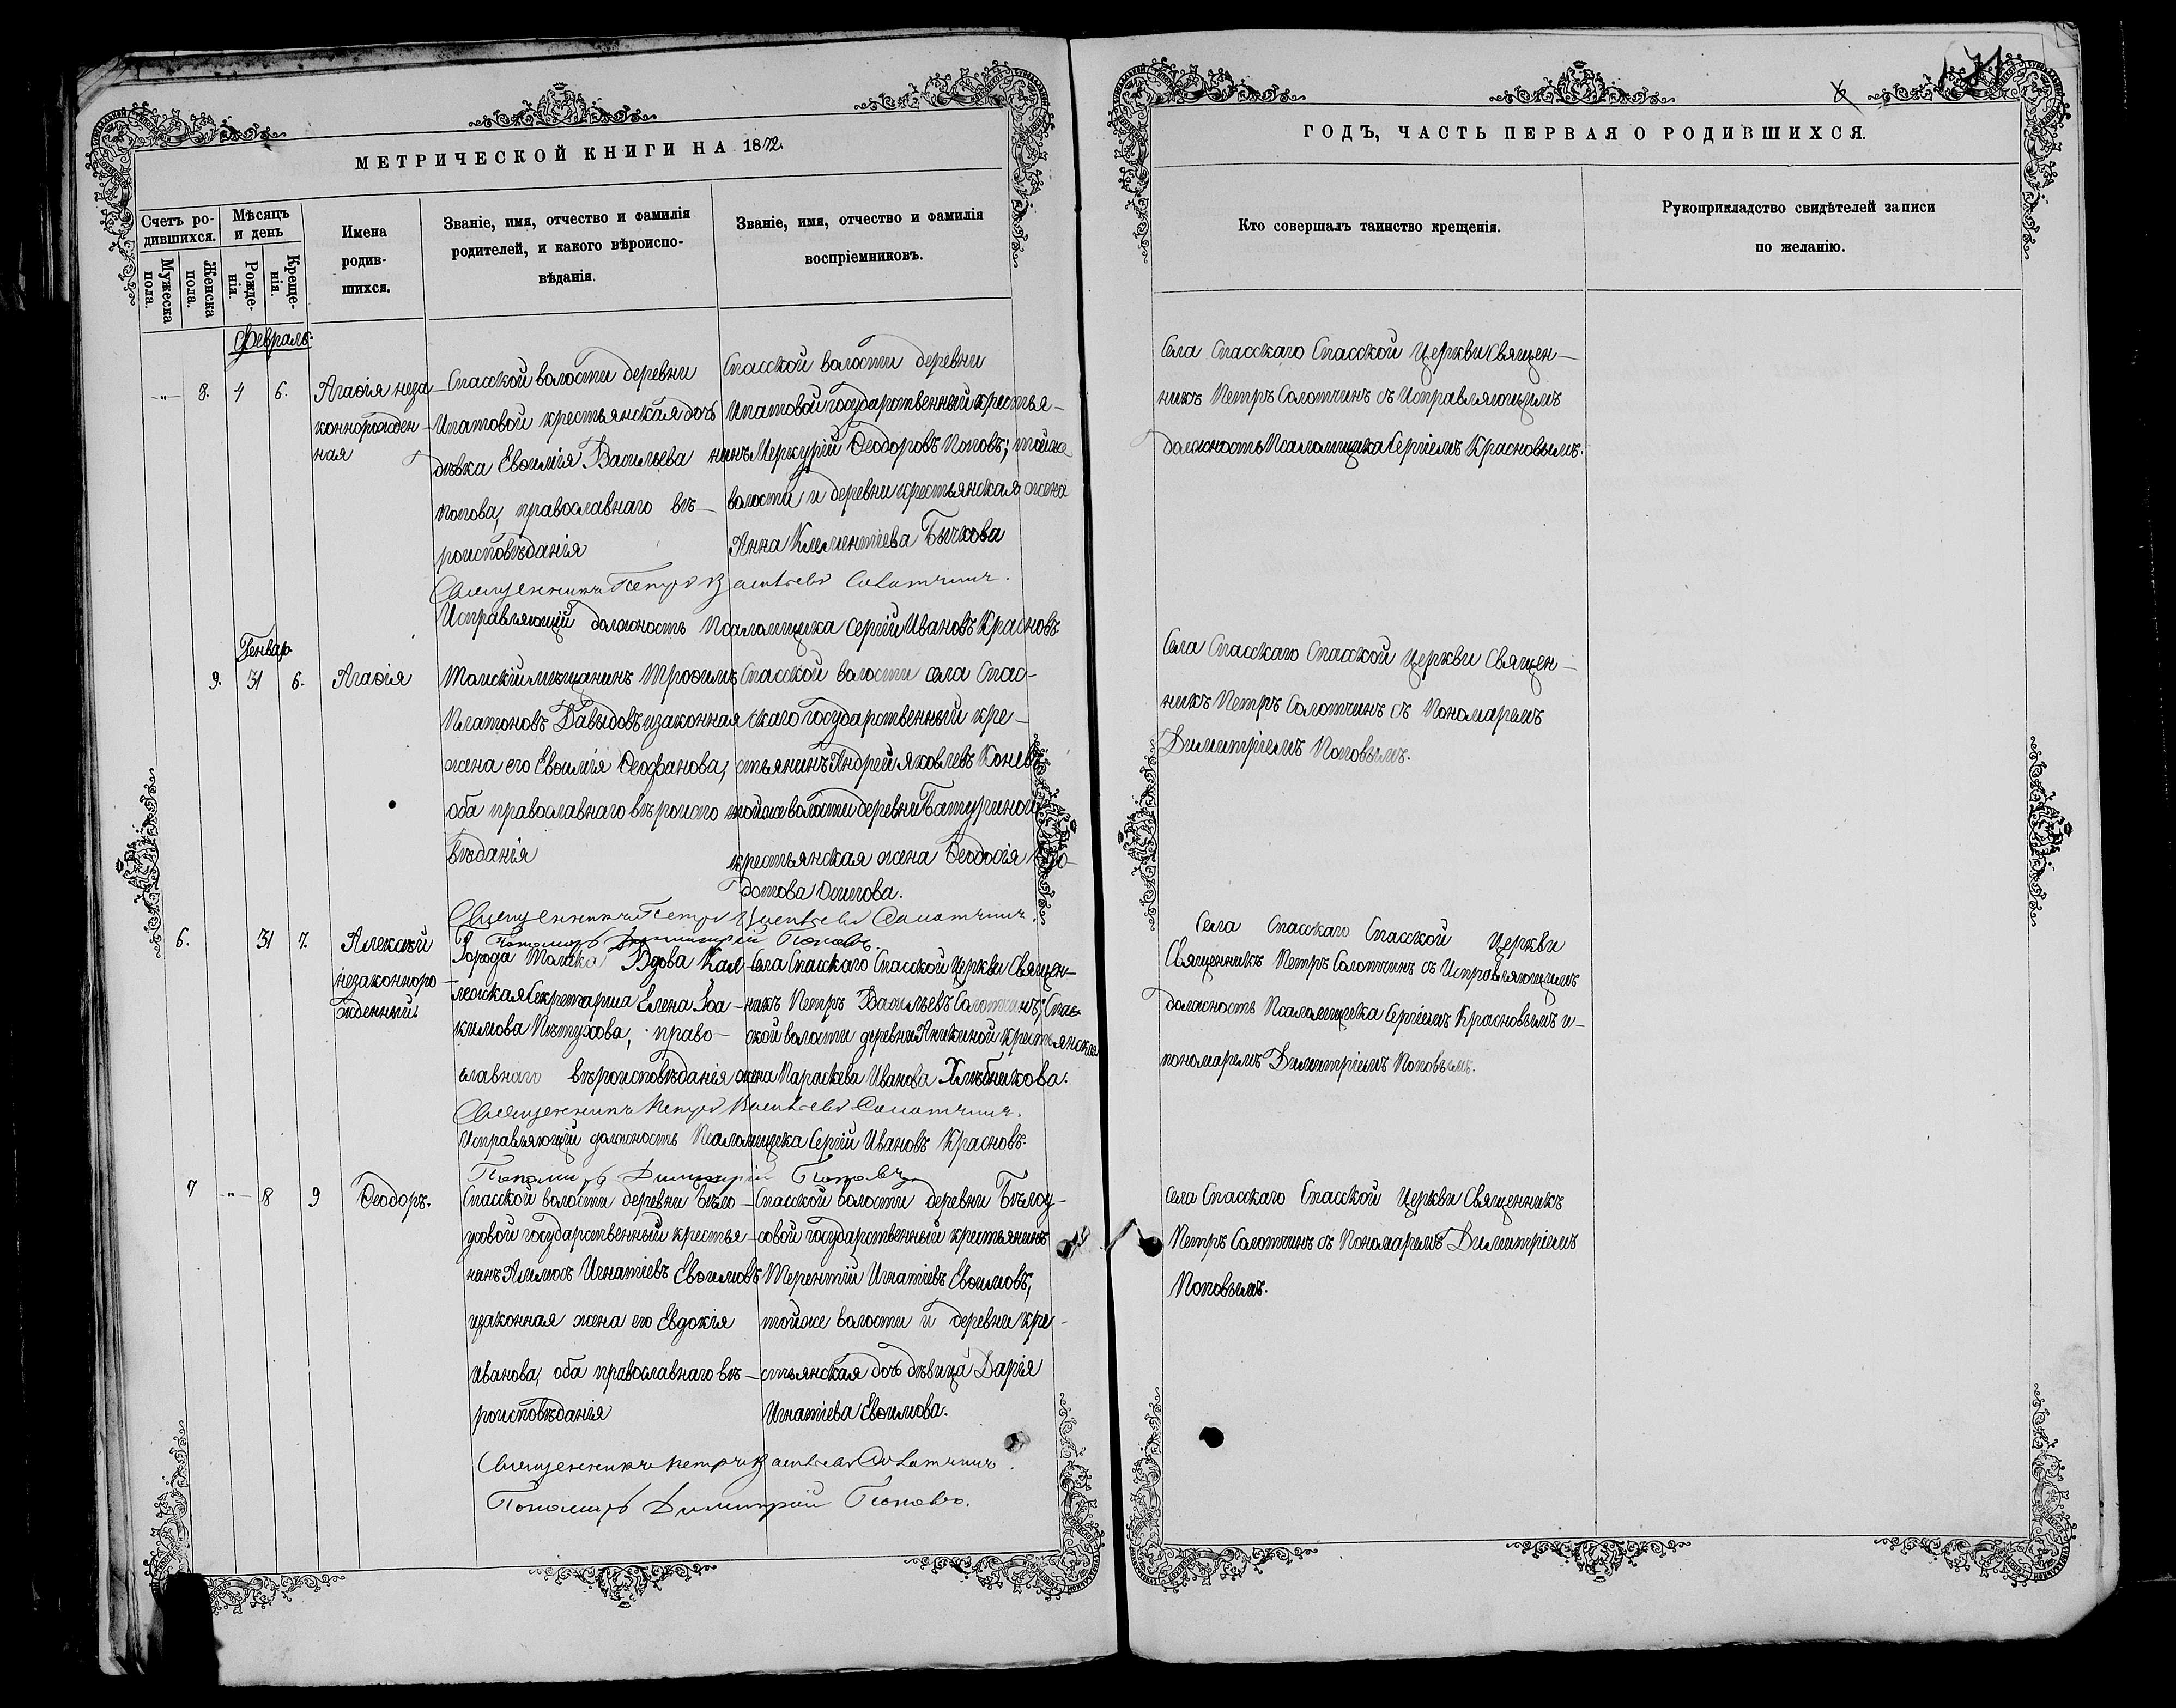 МЕТРИЧЕСКОЙ КНИГИ НА 1872.
Счетъ ро-
дившихся.
Мужеска
пола.
Женска
пола.
Мѣсяцъ
и день
Рожде-
нія.
Креще-
нія.
Имена
родив-
шихся.
Званіе, имя, отчество и фамилія
родителей, и какого вѣроиспо-
вѣданія.
Званіе, имя, отчество и фамилія
воспріемниковъ.
Февраль.
-"- 8. 4 6.
Агаѳія неза-
коннорожден-
ная
Спасской волости деревни
Ипатовой крестьянская дочь
дѣвка Евѳимія Васильева
Попова, православнаго вѣ-
роисповѣданія
Спасской волости деревни
Ипатовой государственный крестья-
нинъ Меркурій Ѳеодоровъ Поповъ; тойже
волости и деревни крестьянская жена
Анна Климентіева Бычкова
Священникъ Петръ Васильевъ Солотчинъ.
Исправляющій должность Псаломщика Сергій Ивановъ Красновъ
Генвар.
9. 31 6.
Агаѳія
Томскій мѣщанинъ Трофимъ
Платоновъ Давыдовъ изаконная
жена его Евѳимія Ѳеофанова,
оба православнаго вѣроиспо
вѣданія
Спасской волости села Спас-
скаго государственный кре-
стьянинъ Андрей Яковлевъ Коневъ
тойже волости деревни Батуриной
крестьянская жена Ѳеодосія
дотова Осипова.
Священникъ Петръ Васильевъ Солотчинъ.
Пономарь Димитрій Поповъ.
6. 31 7.
Алексѣй
незаконноро-
жденный
Города Томска Вдова Кол-
лежская Секретарша Елена Іоа-
кимова Пѣтухова, право-
славнаго вѣроисповѣданія
Села Спасскаго Спасской Церкви Священ-
никъ Петръ Васильевъ Солотчинъ; Спас-
ской волости деревни Аникиной крестьянская
жена Параскева Иванова Хлѣбникова.
Священникъ Петръ Васильевъ Солотчинъ.
Исправляющій должность Псаломщика Сергій Ивановъ Красновъ.
Пономарь Димитрій Поповъ
7 -"- 8 9
Ѳеодоръ.
Спасской волости деревни Бѣло-
усовой государственный крестья-
нинъ Амосъ Игнатіевъ Евѳимовъ
изаконная жена его Евдокія
Иванова, оба православнаго вѣ-
роисповѣданія
Спасской волости деревни Бѣлоу-
совой государственный крестьянинъ
Терентій Игнатіевъ Евѳимовъ,
тойже волости и деревни кре-
стьянская дочь дѣвица Дарія
Игнатіева Евѳимова.
Священникъ Петръ Васильевъ Солотчинъ.
Пономарь Димитрій Поповъ.
6
ГОДЪ, ЧАСТЬ ПЕРВАЯ О РОДИВШИХСЯ.
Кто совершалъ таинство крещенія.
Рукоприкладство свидѣтелей записи
по желанію.
Села Спасскаго Спасской Церкви Священ-
никъ Петръ Солотчинъ съ Исправляющимъ
должность Псаломщика Сергіемъ Красновымъ.
Села Спасскаго Спасской Церкви Священ-
никъ Петръ Солотчинъ съ Пономаремъ
Димитріемъ Поповымъ.
Села Спасскаго Спасской Церкви
Священникъ Петръ Солотчинъ съ Исправляющимъ
должность Псаломщика Сергіемъ Красновымъ и-
пономаремъ Димитріемъ Поповымъ.
Села Спасскаго Спасской Церкви Священникъ
Петръ Солотчинъ съ Пономаремъ Димитріемъ
Поповымъ.